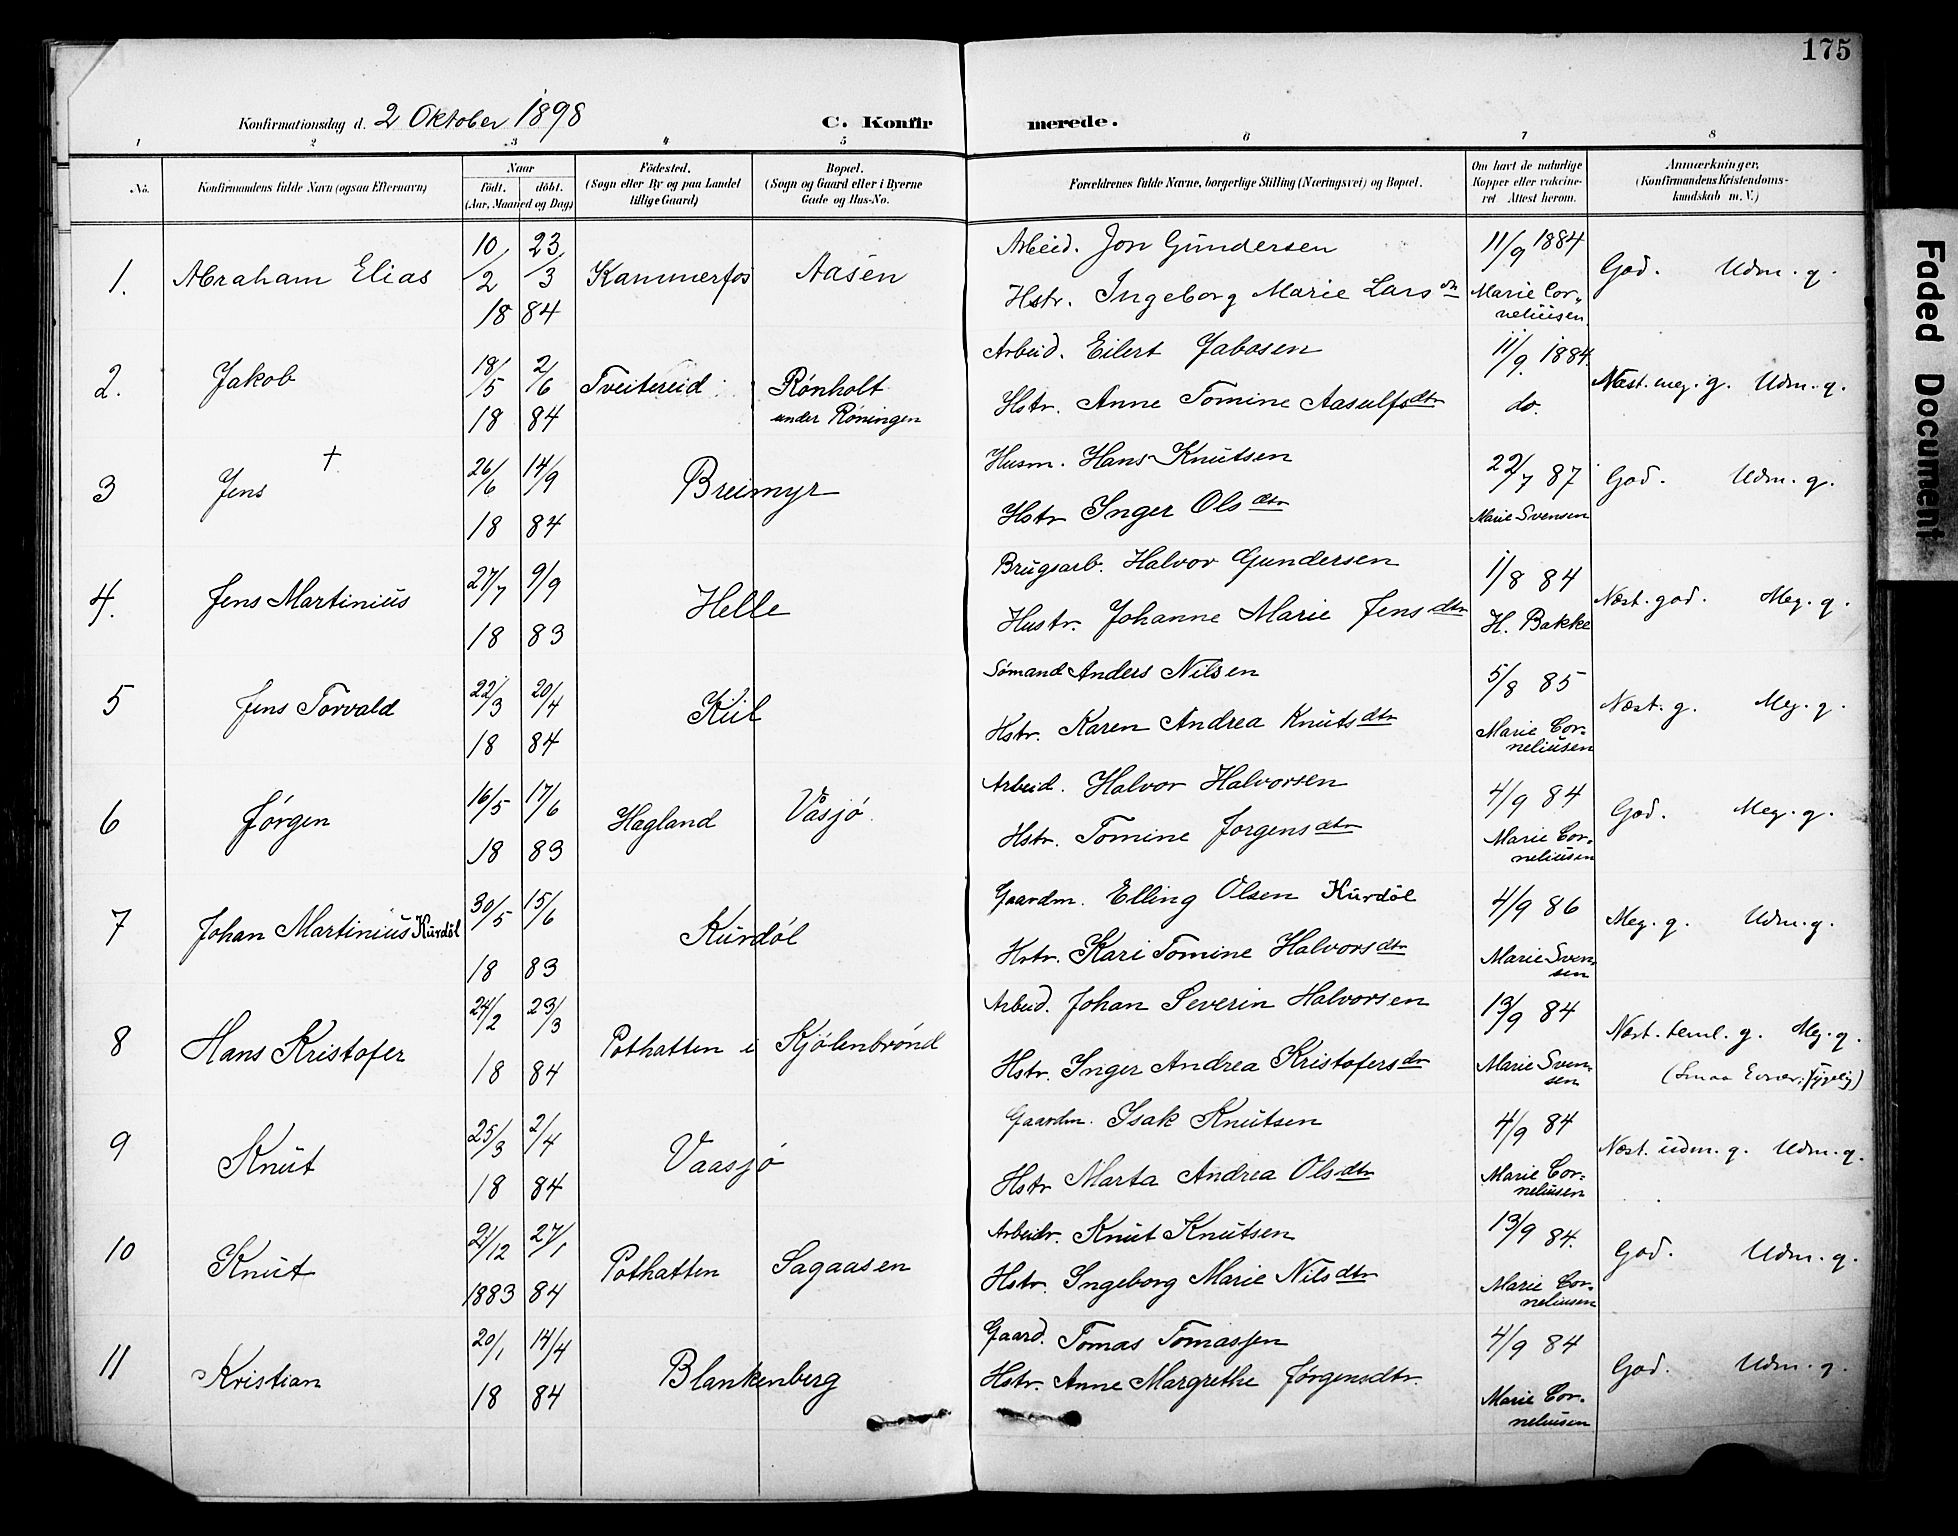 175
Konfirmationsdag d. 2 Oktober 1898 C. Konfirmerede.
1 2 3 4 5 6 7 8
No. Konfirmandens fulde Navn (ogsaa Efternavn) Naar födt. döbt. (Aar, Maaned og Dag) Födested. (Sogn eller By og paa Landet tillige Gaard) Bopæl. (Sogn og Gaard eller i Byerne Gade og Hus-No. Forældrenes fulde Navne, borgerlige Stilling (Næringsvei) og Bopæl. Om havt de naturlige Kopper eller vakcineret Attest herom. Anmærkninger, (Konfirmandens Kristendomskundskab m. V.)
1. Abraham Elias 10/2 23/3 18 84 Kammerfos Aasen Arbeid. Jon Gundersen 11/9 1884 God. Udm. g.
Hstr. Ingeborg Marie Lars dtr Marie Corneliusen
2. Jakob 18/5 2/6 18 84 Tveitereid Rønholt under Røningen Arbeid. Eilert Jabosen 11/9. 1884. Næst. meg. g. Udm. g.
Hstr. Anne Tomine Aasulfsdtr do.
3 Jens † 26/6 14/9 18 84 Breimyr Husm. Hans Knutsen 22/7 87 God. Udm. g.
Hstr Inger Olsdtr Marie Svensen
4. Jens Martinius 27/7 9/9 18 83 Helle Brugsarb. Halvor Gundersen 1/8 84 Næst. god. Meg. g.
Hustr. Johanne Marie Jensdtr H. Bakke
5 Jens Torvald 22/3 20/4 18 84 Kiil Sømand Anders Nilsen 5/8 85 Næst. g. Meg. g.
Hstr. Karen Andrea Knutsdtr Marie Corneliusen
6 Jørgen 16/5 17/6 18 83 Hagland Våsjø. Arbeid. Halvor Halvorsen 4/9 84 God. Meg. g.
Hstr. Tomine Jorgensdtr Marie Corneliusen
7 Johan Martinius Kurdöl 30/5 15/6 18 83 Kurdøl Gaardm. Elling Olsen Kurdöl 4/9 86 Meg. g. Udm. g.
Hstr. Kari Tomine Halvorsdtr Marie Svensen
8 Hans Kristofer 24/2 23/3 18 84 Pothatten i Kjølenbrønd Arbeid. Johan Severin Halvorsen 13/9 84 Næst. teml. g. Meg. g.
Hstr. Inger Andrea Kristofersdr Marie Svensen (Smaa Evner;
9 Knut 25/3 2/4 18 84 Vaasjø Gaardm. Isak Knutsen 4/9 84 Næst. udm. g. Udm. g.
Hstr Marta Andrea Olsdtr Marie Corneliusen
10 Knut 21/12 27/1 1883 84 Pothatten Sagaasen Arbeidr. Knut Knutsen 13/9 84. God. Udm. g.
Hstr. Ingeborg Marie Nilsdtr Marie Corneliusen
11 Kristian 20/1 14/4 18 84 Blankenberg Gaard. Tomas Tomassen 4/9 84 God. Udm. g.
Hstr. Anne Margrethe Jørgensdtr. Marie Corneliusen
Faded Document